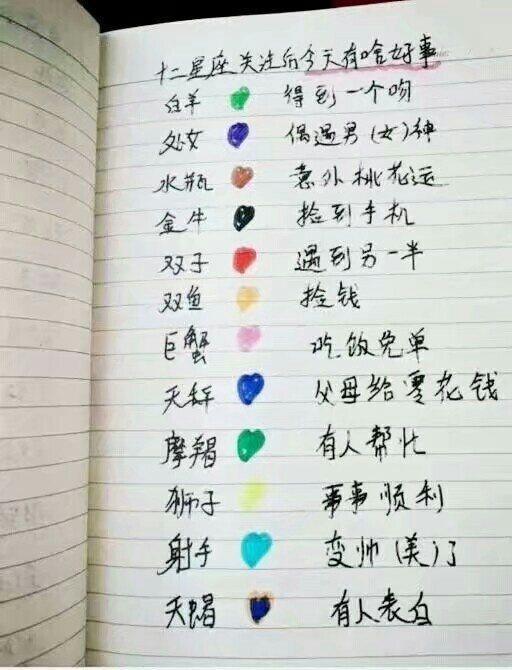 十二星座关注后今天有啥好事
白羊 得到一个吻
处女 偶遇男(女)神
水瓶 意外桃花运
金牛 捡到手机
双子 遇到另一半
双鱼 捡钱
巨蟹 吃饭免单
天秤 父母给零花钱
摩羯 有人帮忙
狮子 事事顺利
射手 变帅(美)了
天蝎 有人表白